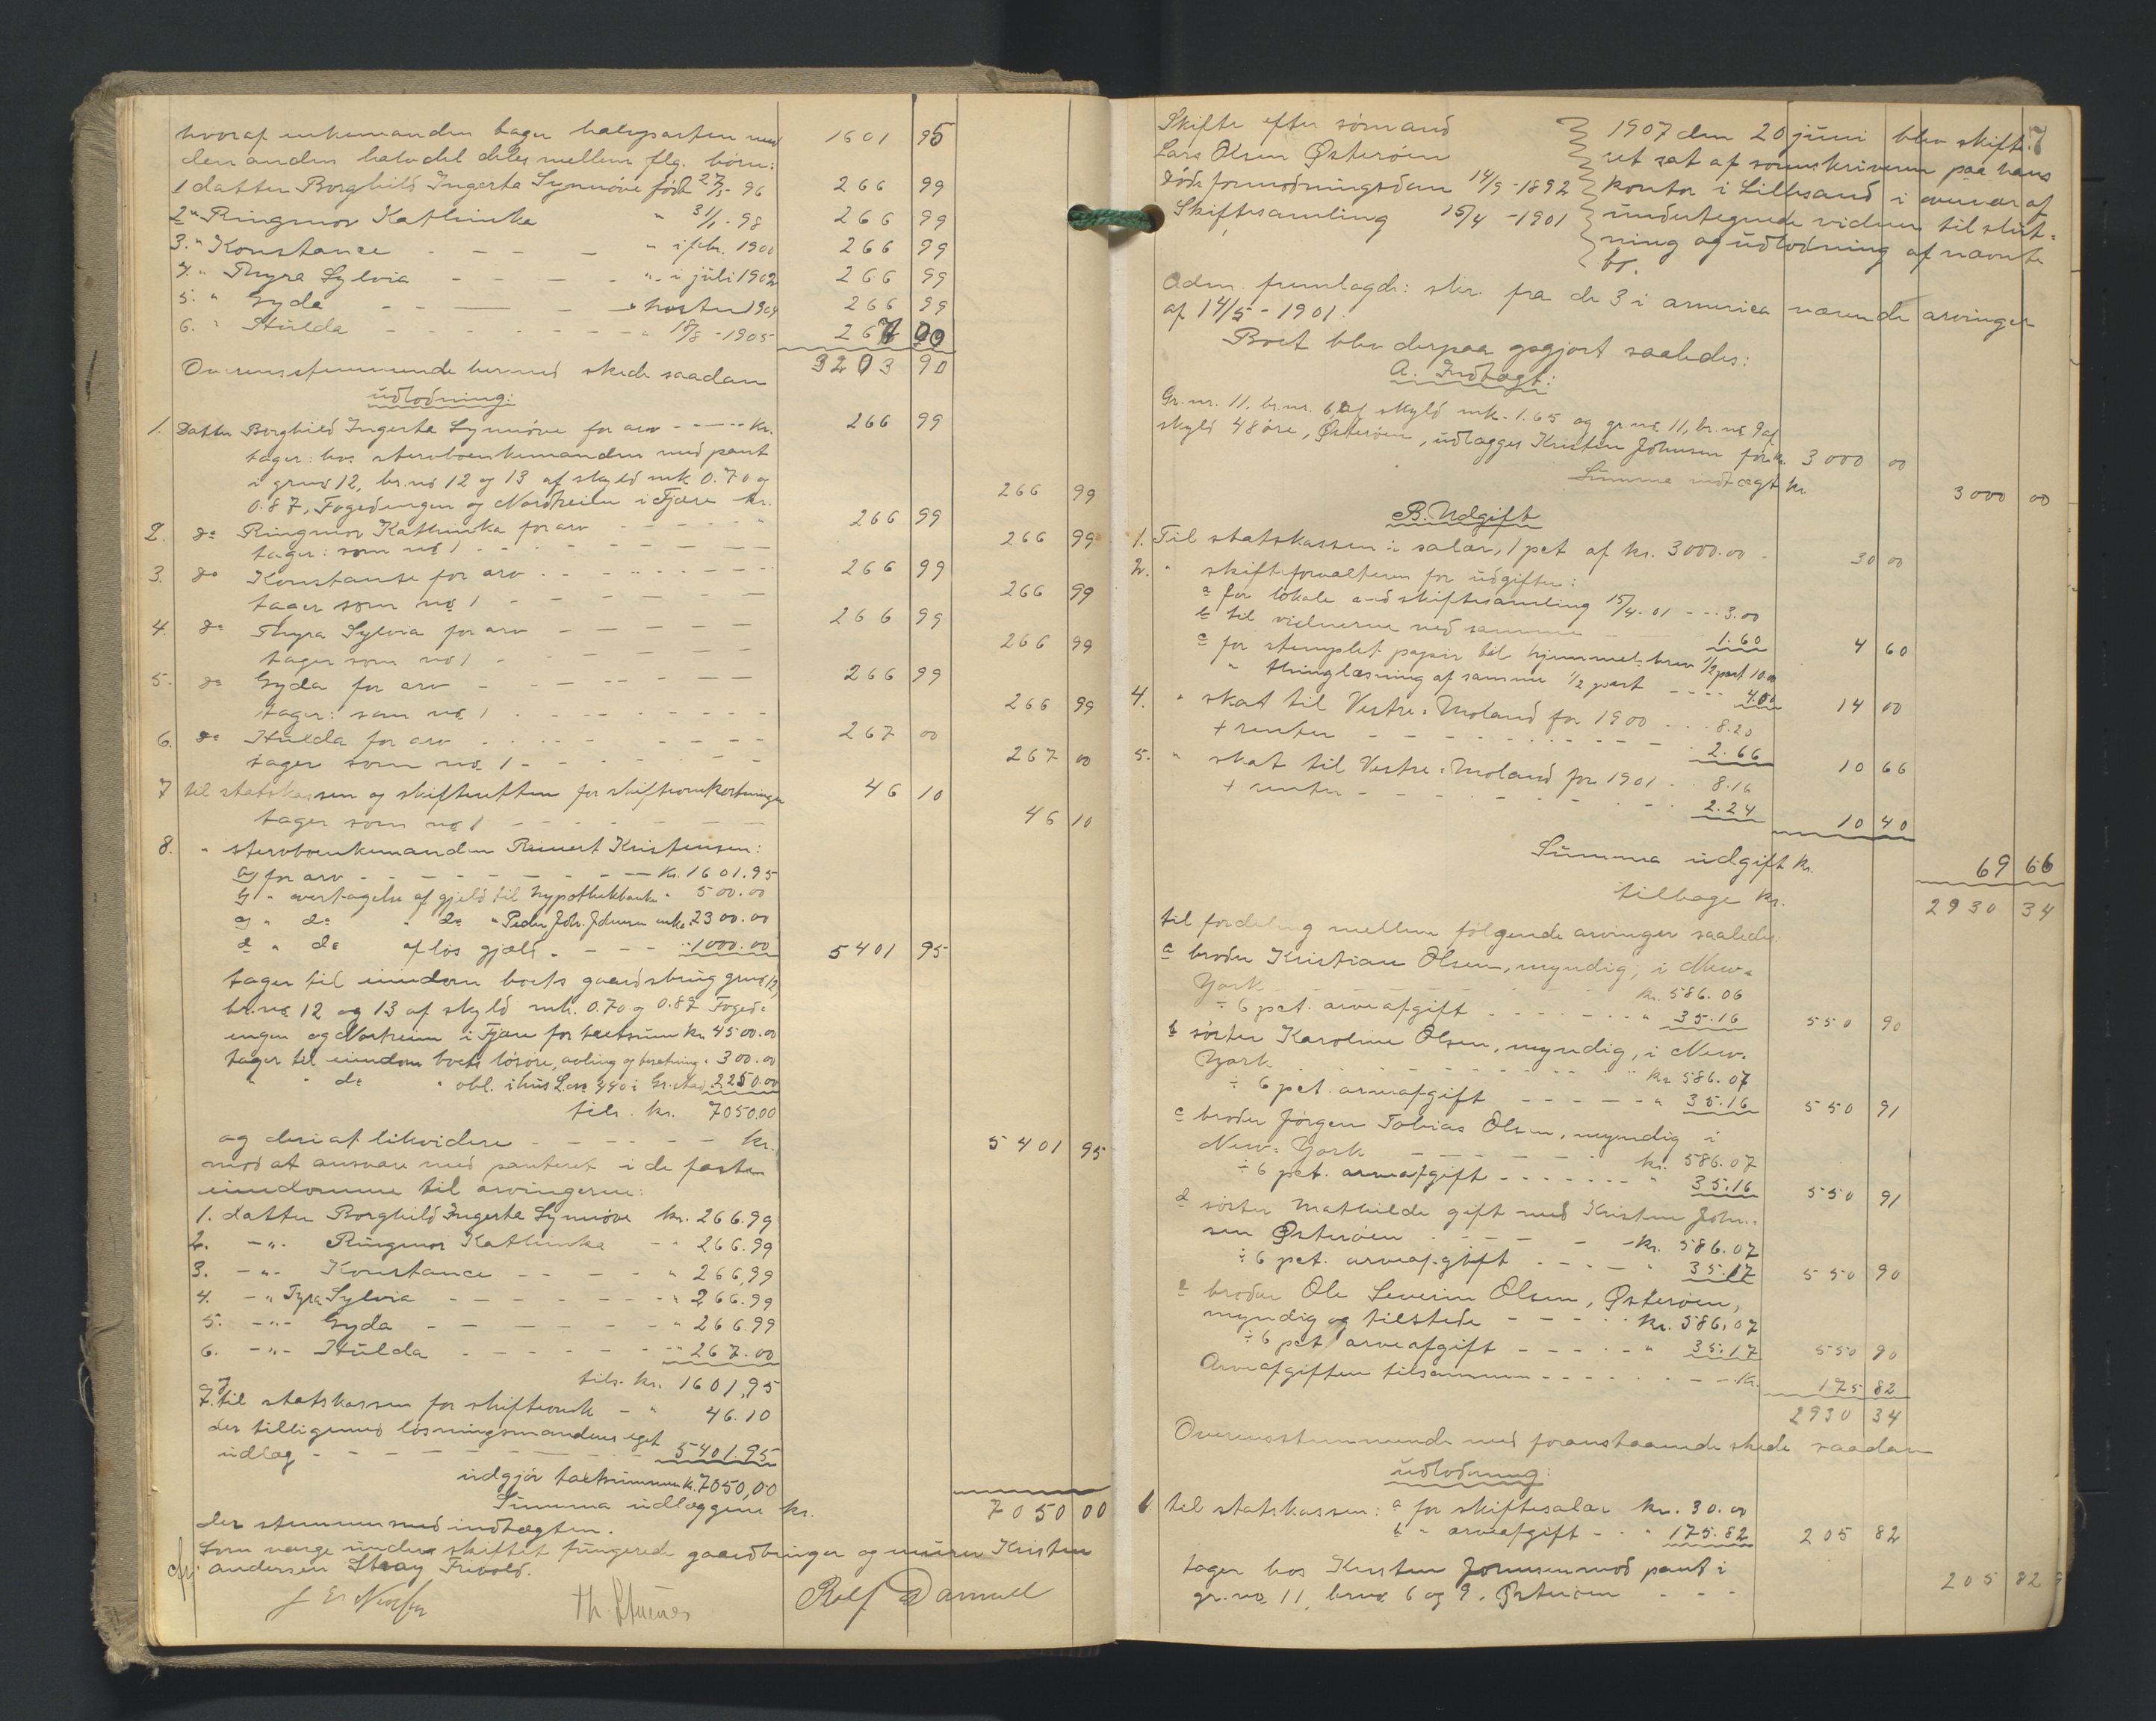 hvoraf enkemanden tager halvparten med 1601 95
den anden halvdel deles mellem flg. børn:
1 datter Borghild Ingerta Synnöve født 27/5-96 266 99
2 " Ringmor Kathinka " 31/1-98 266 99
3. " Konstance - - - - " i febr. 1900 266 99
4. " Thyra Sylvia - - - - " i juli 1902 266 99
5. " Gyda - - - - høsten 1904 266 99
6. " Hulda - - - - - - - " 18/8-1905 267 00
3203 90
Overensstemmende hermed skede saadan
udlodning:
1. Datter Borghild Ingerta Synnöve for arv - - - - kr. 266 99
tager: hos stervboenkemanden med pant
i grno 12, br.no 12 og 13 af skyld mk 0.70 og
0.87, Fogedengen og Nordheim i Fjære kr. 266 99
2. do Ringmor Kathinka for arv - - - - 266 99
tager: som no 1 - - - - - - - 266 99
3. do Konstanse for arv - - - - - - 266 99
tager som no 1 - - - - - - - 266 99
4. do Thyra Sylvia for arv - - - - - 266 99
tager som no 1 - - - - - - 266 99
5. do Gyda for arv - - - - - - - 266 99
tager: som no 1 - - - - - - - 266 99
6. do Hulda for arv - - - - - - - 267 00
tager som no. 1 - - - - - - - 267 00
7 til statskassen og skifteretten for skifteomkostninger 46 10
tager som no 1 - - - - - - 46 10
8. " stervboenkemanden Reinert Kristensen:
a) for arv - - - - - - - - kr. 1601.95
b) " overtagelse af gjeld til Hypothekbanken " 500.00
c) " do " do " Peder Joh. Jensen enke " 2300.00
d " do af løs gjæld. - - - " 1000.00 5401 95
tager til eiendom boets gaardsbrug grno 12,
br.no 12 og 13 af skyld mk. 0.70 og 0.87 Foged-
engen og Nordheim i Fjære for taktsum kr. 4500.00
tager til eiendom boets løsøre, avling og besetning " 300.00
" " do " obl. i hus L.no 440 i Gr.stad 2250.00
tils. kr. 7050.00
og deri at likvidere - - - - - - kr. 5401 95
mod at ansvare med panteret i de faste
eiendomme til arvingerne:
1. datter Borghild Ingerta Synnöve kr. 266.99
2. -"- Ringmor Kathinka - " 266.99
3. -"- Konstance - - - - " 266,99
4. -" Tyra Sylvia - - - - - - " 266.99
5. -"- Gyda - - - - - - - " 266.99
6. -"- Hulda - - - - - - " 267.00
tils. kr. 1601,95
7. til statskassen for skifteomk - " 46.10
der tilligemed løsningsmandens eget
udlæg - - - - - - - - 5401.95
udgjør taktsummen kr. 7050,00
Summa udlæggene kr. 7050 00
der stemmer med indtægten.
Som værge under skiftet fungerede gaardbruger og murer Kristen
Andersen Stray Frivold.
Th. Stuenes Rolf Damull
Skifte efter sømand
Lars Olsen Østerøen
døde formodningsdom 14/9-1892
Skiftesamling 15/4-1901
7
1907 den 20 juni blev skifte-
ret sat af sorenskriveren paa hans
kontor i Lillesand i overvær af
undertegnede vidner til slut-
ning og udlodning af nævnte
bo.
Adm. fremlagde: skr. fra de 3 i america værende arvinger
af 14/5-1901.
Boet blev derpaa opgjort saaledes:
A. Indtægt:
Gr.nr. 11. br.nr. 6, af skyld mk. 1.65 og gr.no 11, br.no 9 af
skyld 48 øre, Østerøen, udlægges Kristen Johnsen for kr. 3000 00
Summa indtægt kr. 3000 00
B. Udgift
1. Til statskassen i salær, 1 pct af kr. 3000.00 - 30 00
2. " skifteforvalteren for udgifter:
a for lokale ved skiftesamling 15/4-01 - - - 3.00
b til vidnerne ved samme - - 1.60 4 60
c for stemplet papir til hjemmelsbrev 1/2 part 10.00
" thinglæsning af samme 1/2 part - - - - 4.00 14 00
4. " skat til Vestre-Moland for 1900 - - - 8.20
+ renter - - - - - - - - - - 2.66 10 66
5. " skat til Vestre-Moland for 1901 - - 8.16
+ renter - - - - - - - - - 2.24 10 40
Summa udgift kr. 69 66
tilbage kr. 2930 34
til fordeling mellem følgende arvinger saaledes:
a broder Kristian Olsen, myndig, i New-
York - - - - - - - - - kr. 586.06
÷ 6 pct. arveafgift - - - - - - " 35.16 550 90
b søster Karoline Olsen, myndig, i New-
York - - - - - - - - - " kr. 586.07
÷ 6 pct. arveafgift - - - - - " 35.16 550 91
c broder Jørgen Tobias Olsen, myndig i
New-York - - - - - - kr. 586.07
÷ 6 pct. arveafgift - - - - - - - " 35.16 550 91
d søster Mathilde gift med Kristen John-
sen Østerøen - - - - - kr. 586.07
÷ 6 pct. arveafgift - - - - " 35.17 550 90
e broder Ole Severin Olsen, Østerøen,
myndig og tilstede - - - - - kr. 586,07
÷ 6 pct arveafgift - - - - - " 35.17 550 90
Arveafgiften tilsammen - - - - - - kr. 175 82
2930 34
Overensstemmende med foranstaaende skede saadan
udlodning:
1 til statskassen: a for skiftesalær kr. 30.00
b " arveafgift - - " 175.82 205 82
tager hos Kristen Johnsen mod pant i
gr.no 11, brno 6 og 9. Østerøen - - - 205 82